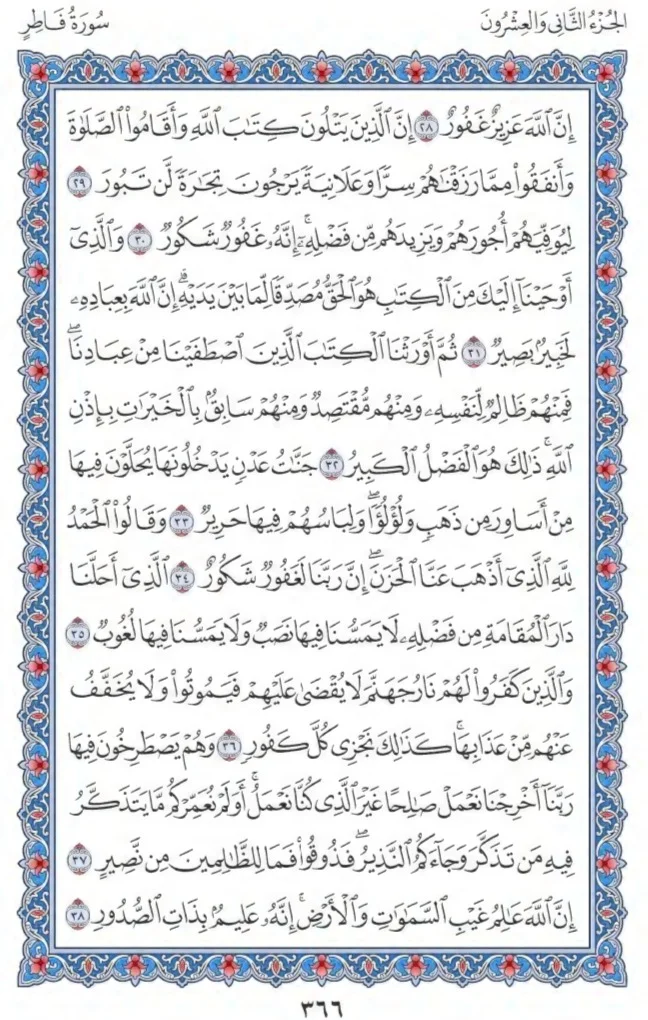 الجُزْءُ الثَّانِى وَالعِشْرُونَ
سُورَةُ فَاطِرٍ
إِنَّ ٱللَّهَ عَزِيزٌ غَفُورٌ ٢٨ إِنَّ ٱلَّذِينَ يَتْلُونَ كِتَٰبَ ٱللَّهِ وَأَقَامُوا۟ ٱلصَّلَوٰةَ
وَأَنفَقُوا۟ مِمَّا رَزَقْنَٰهُمْ سِرًّا وَعَلَانِيَةً يَرْجُونَ تِجَٰرَةً لَّن تَبُورَ ٢٩
لِيُوَفِّيَهُمْ أُجُورَهُمْ وَيَزِيدَهُم مِّن فَضْلِهِۦٓ ۚ إِنَّهُۥ غَفُورٌ شَكُورٌ ٣٠ وَٱلَّذِىٓ
أَوْحَيْنَآ إِلَيْكَ مِنَ ٱلْكِتَٰبِ هُوَ ٱلْحَقُّ مُصَدِّقًا لِّمَا بَيْنَ يَدَيْهِ ۗ إِنَّ ٱللَّهَ بِعِبَادِهِۦ
لَخَبِيرٌۢ بَصِيرٌ ٣١ ثُمَّ أَوْرَثْنَا ٱلْكِتَٰبَ ٱلَّذِينَ ٱصْطَفَيْنَا مِنْ عِبَادِنَا ۖ
فَمِنْهُمْ ظَالِمٌ لِّنَفْسِهِۦ وَمِنْهُم مُّقْتَصِدٌ وَمِنْهُمْ سَابِقٌۢ بِٱلْخَيْرَٰتِ بِإِذْنِ
ٱللَّهِ ۚ ذَٰلِكَ هُوَ ٱلْفَضْلُ ٱلْكَبِيرُ ٣٢ جَنَّٰتُ عَدْنٍ يَدْخُلُونَهَا يُحَلَّوْنَ فِيهَا
مِنْ أَسَاوِرَ مِن ذَهَبٍ وَلُؤْلُؤًا ۖ وَلِبَاسُهُمْ فِيهَا حَرِيرٌ ٣٣ وَقَالُوا۟ ٱلْحَمْدُ
لِلَّهِ ٱلَّذِىٓ أَذْهَبَ عَنَّا ٱلْحَزَنَ ۖ إِنَّ رَبَّنَا لَغَفُورٌ شَكُورٌ ٣٤ ٱلَّذِىٓ أَحَلَّنَا
دَارَ ٱلْمُقَامَةِ مِن فَضْلِهِۦ لَا يَمَسُّنَا فِيهَا نَصَبٌ وَلَا يَمَسُّنَا فِيهَا لُغُوبٌ ٣٥
وَٱلَّذِينَ كَفَرُوا۟ لَهُمْ نَارُ جَهَنَّمَ لَا يُقْضَىٰ عَلَيْهِمْ فَيَمُوتُوا۟ وَلَا يُخَفَّفُ
عَنْهُم مِّنْ عَذَابِهَا ۚ كَذَٰلِكَ نَجْزِى كُلَّ كَفُورٍ ٣٦ وَهُمْ يَصْطَرِخُونَ فِيهَا
رَبَّنَآ أَخْرِجْنَا نَعْمَلْ صَٰلِحًا غَيْرَ ٱلَّذِى كُنَّا نَعْمَلُ ۚ أَوَلَمْ نُعَمِّرْكُم مَّا يَتَذَكَّرُ
فِيهِ مَن تَذَكَّرَ وَجَآءَكُمُ ٱلنَّذِيرُ ۖ فَذُوقُوا۟ فَمَا لِلظَّٰلِمِينَ مِن نَّصِيرٍ ٣٧
إِنَّ ٱللَّهَ عَٰلِمُ غَيْبِ ٱلسَّمَٰوَٰتِ وَٱلْأَرْضِ ۚ إِنَّهُۥ عَلِيمٌۢ بِذَاتِ ٱلصُّدُورِ ٣٨
٣٦٦